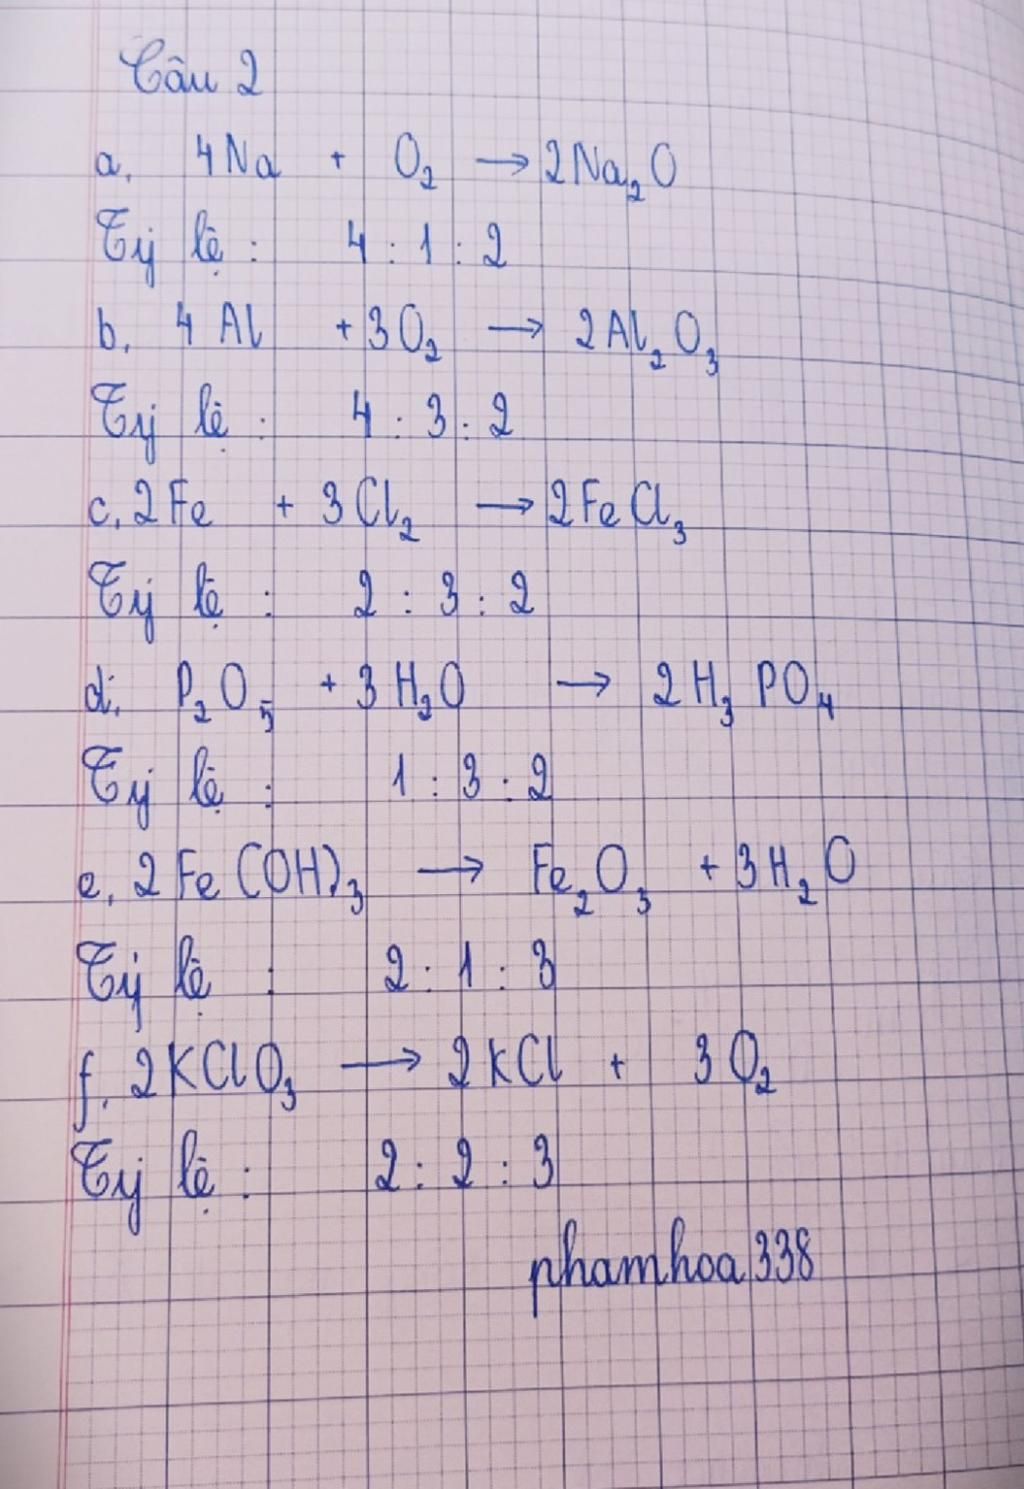 Câu 2
a. 4Na + O₂ → 2Na₂O
Tỷ lệ : 4 : 1 : 2
b. 4Al + 3O₂ → 2Al₂O₃
Tỷ lệ : 4 : 3 : 2
c. 2Fe + 3Cl₂ → 2FeCl₃
Tỷ lệ : 2 : 3 : 2
d. P₂O₅ + 3H₂O → 2H₃PO₄
Tỷ lệ : 1 : 3 : 2
e. 2Fe(OH)₃ → Fe₂O₃ + 3H₂O
Tỷ lệ : 2 : 1 : 3
f. 2KClO₃ → 2KCl + 3O₂
Tỷ lệ : 2 : 2 : 3
phamhoa338